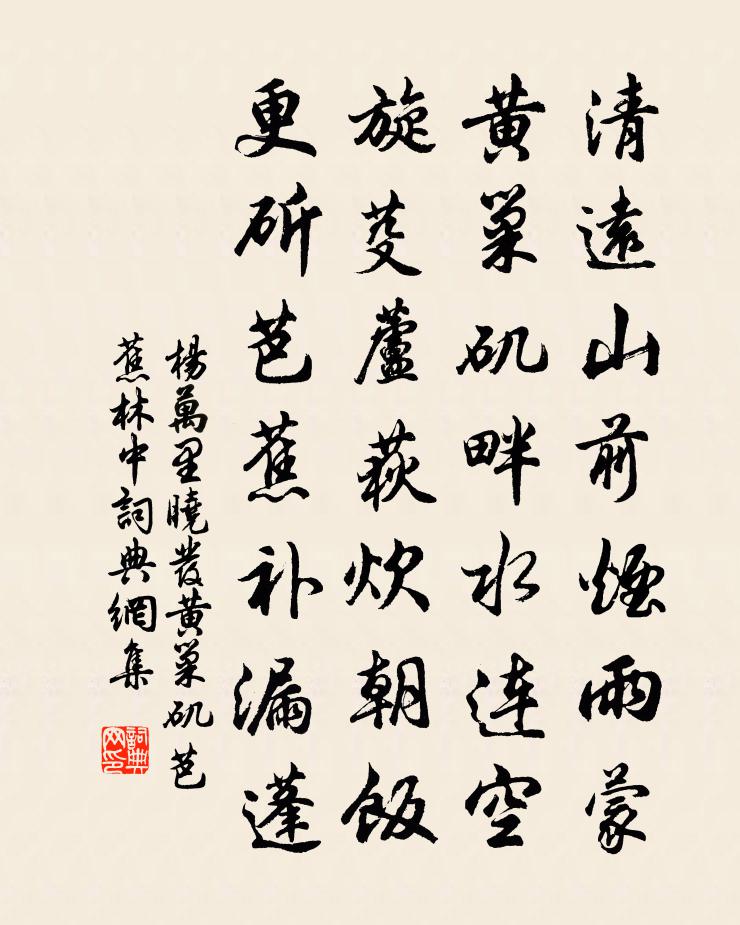 清遠山前煙雨蒙
黄巢矶畔水連空
旋芟蘆荻炊朝飯
更斫芭蕉补漏蓬
楊萬里曉發黄巢矶芭
蕉林中詞典網集
詞典
网印